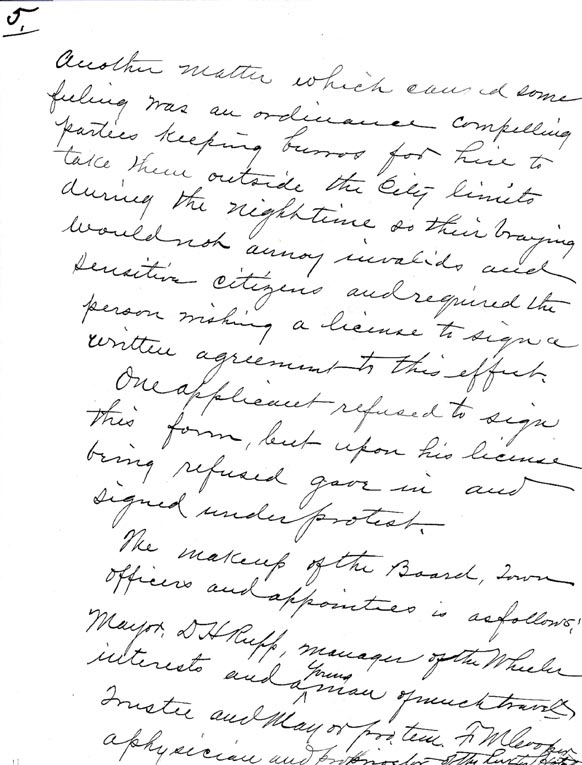 5.
Another matter which caused some
feeling was an ordinance compelling
parties keeping burros for hire to
take them outside the City limits
during the nighttime so their braying
would not annoy invalids and
sensitive citizens and required the
person wishing a license to sign a
written agreement to this effect.
One applicant refused to sign
this form, but upon his license
being refused gave in and
signed under protest.
The makeup of the Board, Town
officers and appointies is as follows:
Mayor. D H Rupp, manager of the Wheeler
interests and a young man of much travel.
Trustee and Mayor pro. tem. F M Cooper
a physician and proprietor of the Hotel